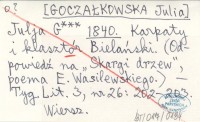 [GOCZAŁKOWSKA Julia]
Julja G*** 1840. Karpaty
i klasztór Bielański. (Od-
powiedź na „Skargi drzew"
poema E. Wasilewskiego.) -
Tyg. Lit. 3, nr 26: 202-203.
Wiersz.